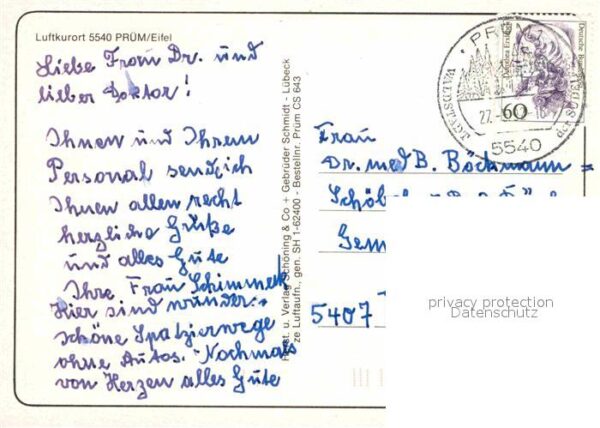 Luftkurort 5540 PRÜM/Eifel
Liebe Frau Dr. und
lieber Doktor!
Ihnen und Ihrem
Personal send ich
Ihnen allen recht
herzliche Grüße
und alles Gute
Ihre Frau Schimmek
Hier sind wunder-
schöne Spatzierwege
ohne Autos. Nochmals
von Herzen alles Gute
Verlag Schöning & Co + Gebrüder Schmidt - Lübeck
ze Luftaufn., gen. SH 1-62400 - Bestellnr. Prüm CS 643
PRÜM
WALDSTADT
27.
5540
60
Frau
Dr. med B. Böckmann =
Schöb
Gem
5407
privacy protection
Datenschutz